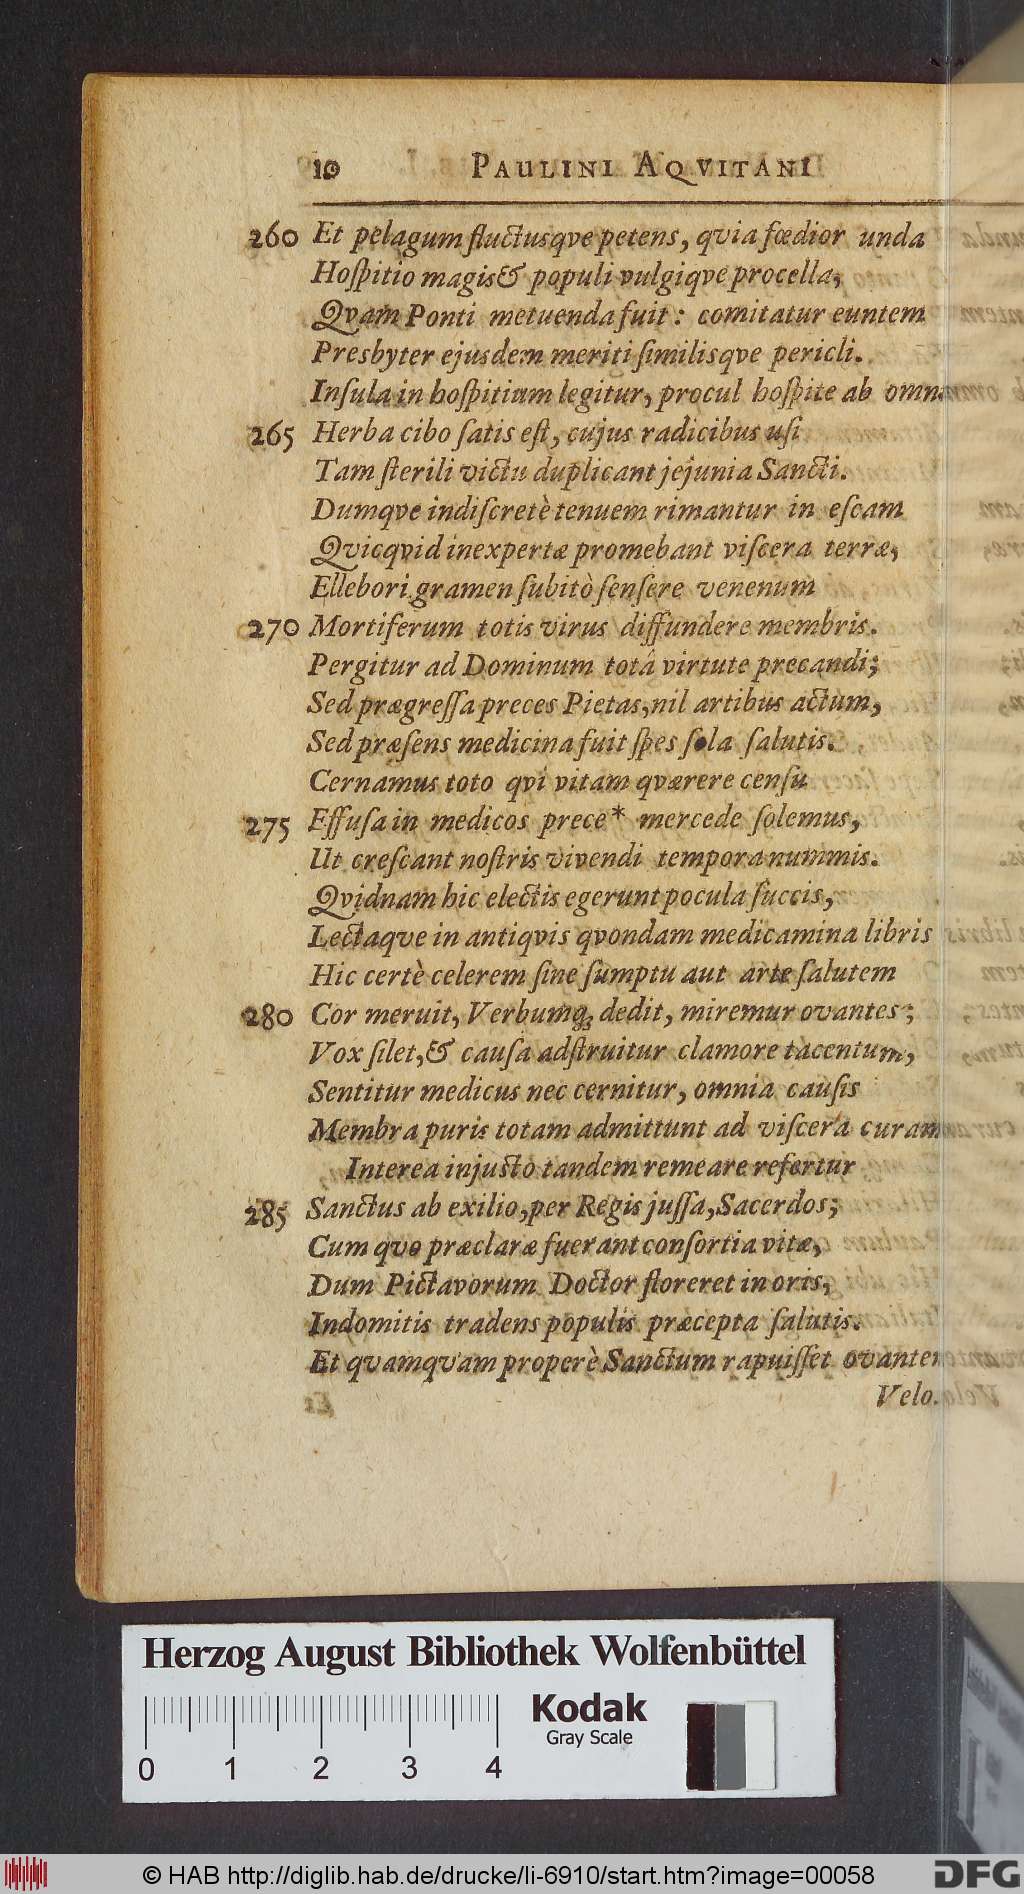 10 PAULINI AQVITANI
260 Et pelagum fluctusqve petens, qvia fœdior unda
Hoſpitio magis & populi vulgiqve procella,
Qvam Ponti metuenda fuit: comitatur euntem
Presbyter ejusdem meriti ſimilisqve pericli.
Inſula in hoſpitium legitur, procul hoſpite ab omni
265 Herba cibo ſatis eſt, cujus radicibus uſi
Tam ſterili victu duplicant jejunia Sancti.
Dumqve indiſcretè tenuem rimantur in eſcam
Qvicqvid inexpertæ promebant viſcera terræ,
Ellebori gramen ſubitò ſenſere venenum
270 Mortiferum totis virus diffundere membris.
Pergitur ad Dominum totâ virtute precandi;
Sed prægreſſa preces Pietas, nil artibus actum,
Sed præſens medicina fuit ſpes ſola ſalutis.
Cernamus toto qvi vitam qværere cenſu
275 Effuſa in medicos prece* mercede ſolemus,
Ut creſcant noſtris vivendi tempora nummis.
Qvidnam hic electis egerunt pocula ſuccis,
Lectaqve in antiqvis qvondam medicamina libris
Hic certè celerem ſine ſumptu aut arte ſalutem
280 Cor meruit, Verbumq; dedit, miremur ovantes;
Vox ſilet, & cauſa adſtruitur clamore tacentum,
Sentitur medicus nec cernitur, omnia cauſis
Membra puris totam admittunt ad viſcera curam
Interea injuſto tandem remeare refertur
285 Sanctus ab exilio, per Regis juſſa, Sacerdos;
Cum qvo præclaræ fuerant conſortia vitæ,
Dum Pictavorum Doctor floreret in oris,
Indomitis tradens populis præcepta ſalutis.
Et qvamqvam properè Sanctum rapuiſſet ovantem
Velo.
Herzog August Bibliothek Wolfenbüttel
0 1 2 3 4
Kodak
Gray Scale
© HAB http://diglib.hab.de/drucke/li-6910/start.htm?image=00058
DFG